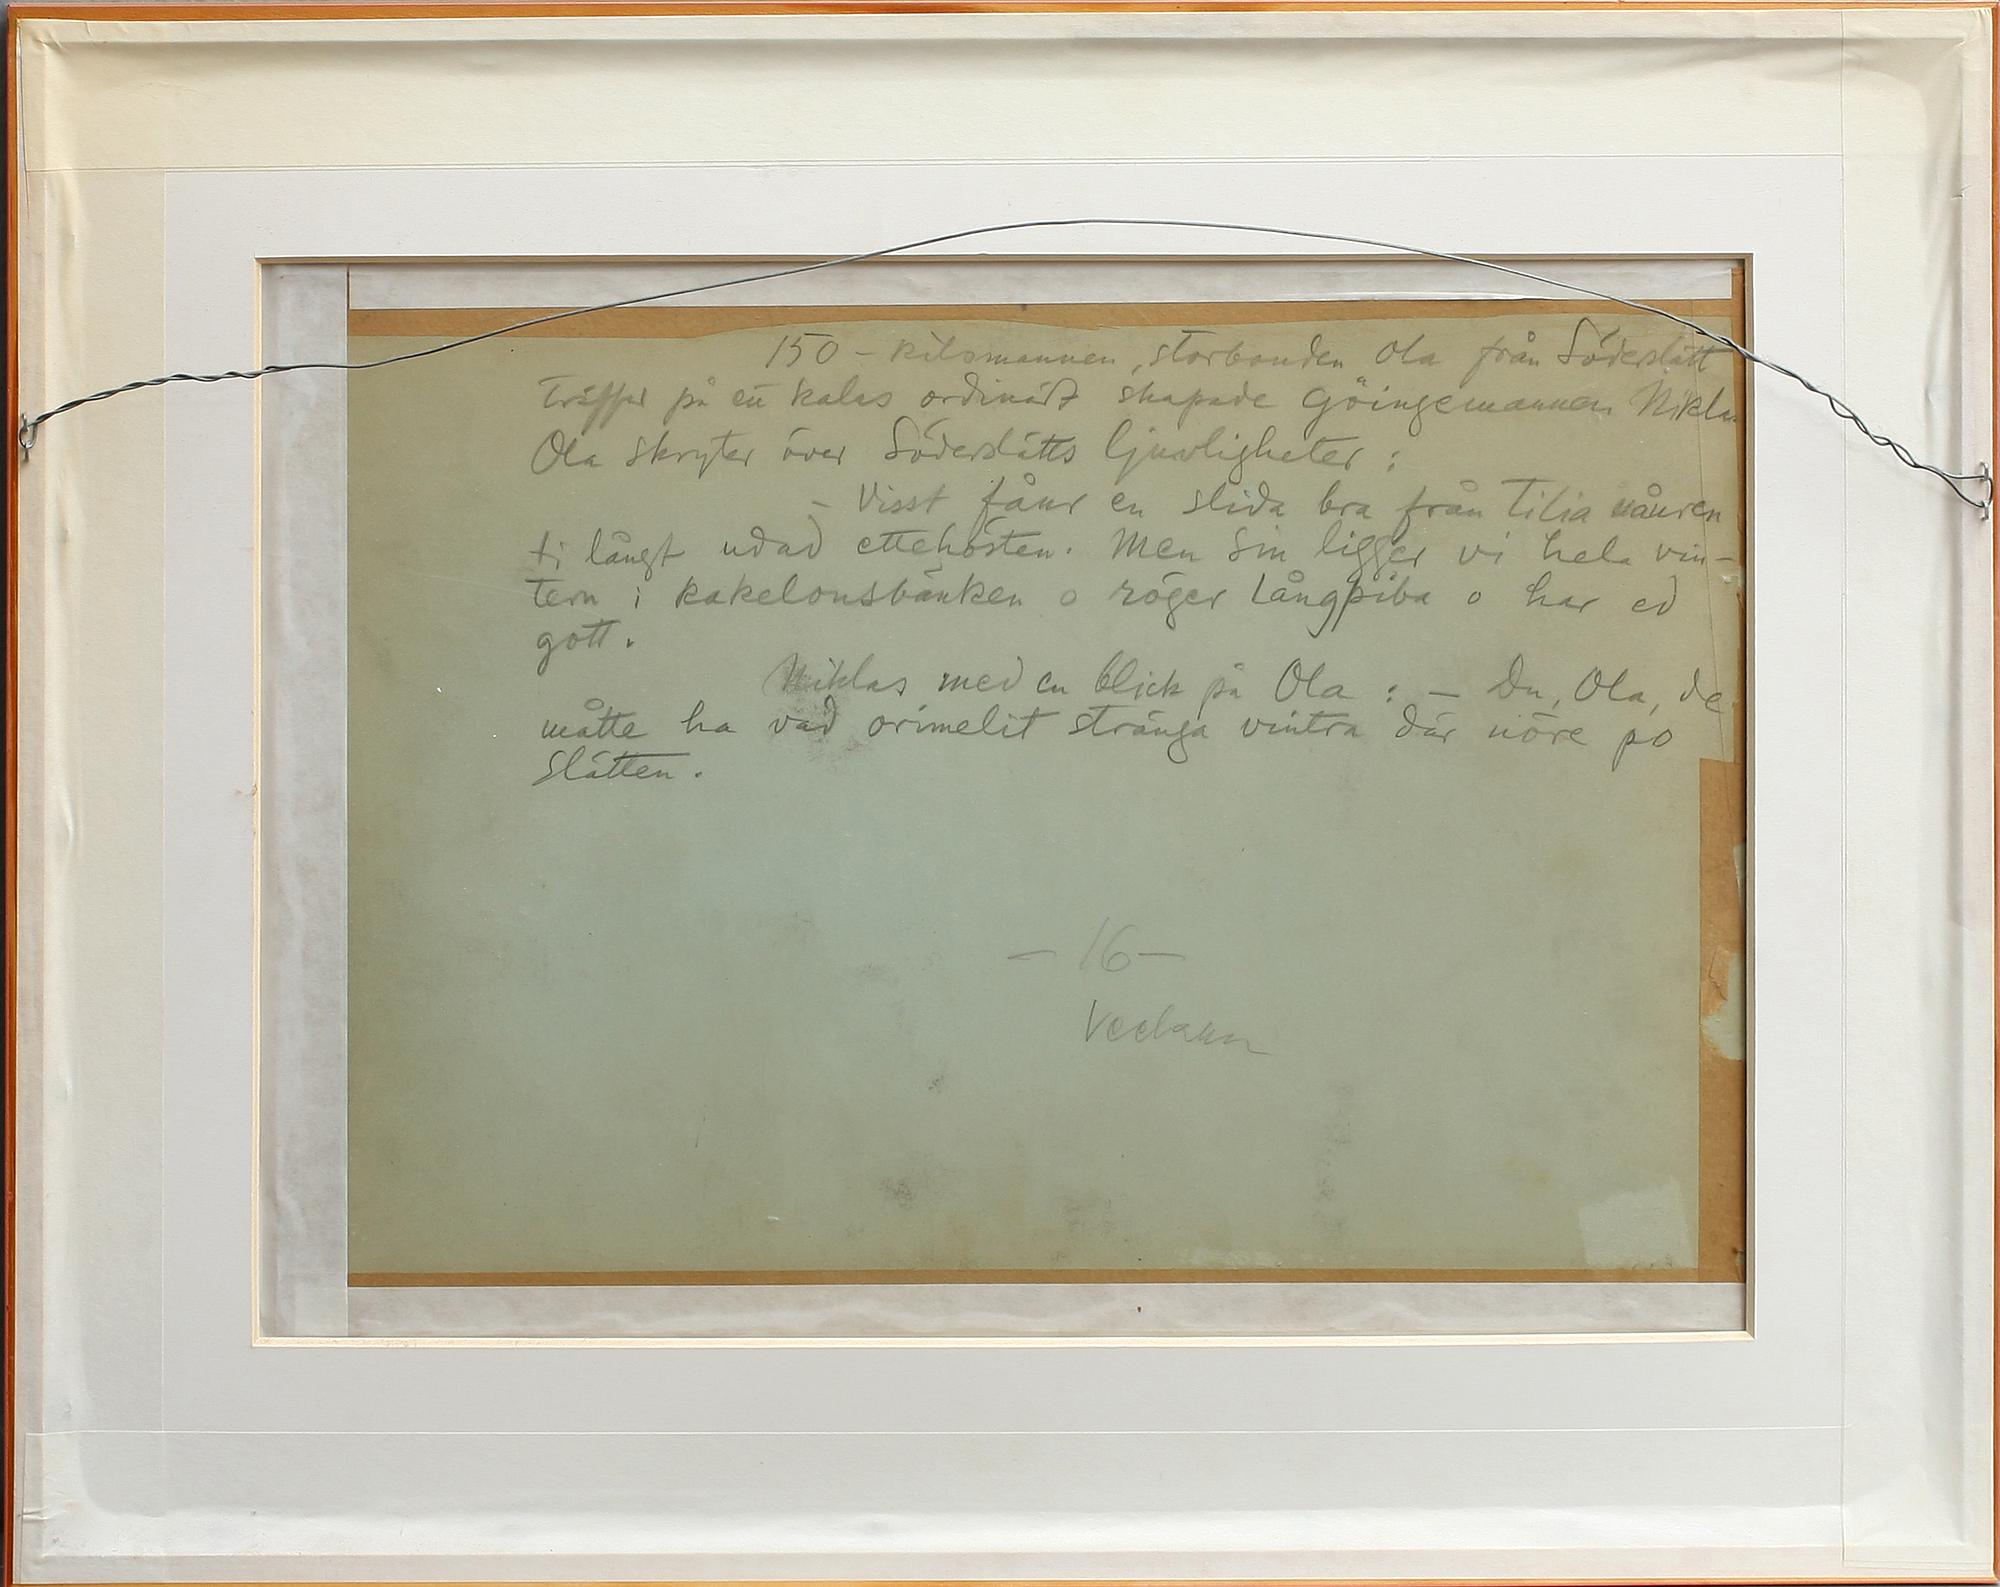 150 - kilosmannen, storbonden Ola från Söderslätt
träffar på ett kalas ordinärt skapade Göingemannen Niklas
Ola skryter över Söderslätts ljuvligheter :
- Visst fånr en slida bra från tilia våuren
ti långt udad ettehösten. Men Sin ligger vi hela vin-
tern i kakelonsbänken o röger Långpiba o har ed
gott.
Niklas med en blick på Ola : - Du, Ola, de
måtte ha vad orimelit stränga vintra där nöre po
Slätten.
- 16 -